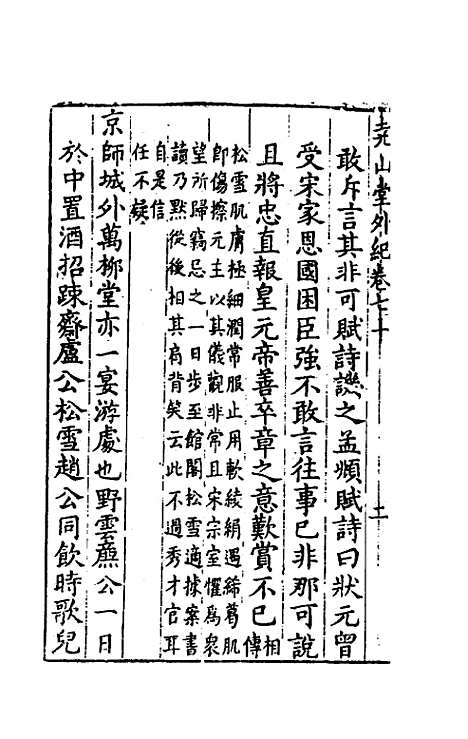 尭山堂外紀卷七十 二
敢斥言其非可賦詩譏之孟頫賦詩曰狀元曾
受宋家恩國困臣強不敢言往事已非那可說
且將忠直報皇元帝善卒章之意歎賞不已相傳
松雪肌膚極細潤常服止用軟綾絹遇絺葛肌
即傷擦元主以其儀觀非常且宋宗室懼為衆
望所歸竊忌之一日步至館閣松雪適據案書
讀乃默從後相其肩背笑云此不過秀才官耳
自是信
任不疑
京師城外萬柳堂亦一宴游處也野雲廉公一日
於中置酒招踈齋盧公松雪趙公同飲時歌兒